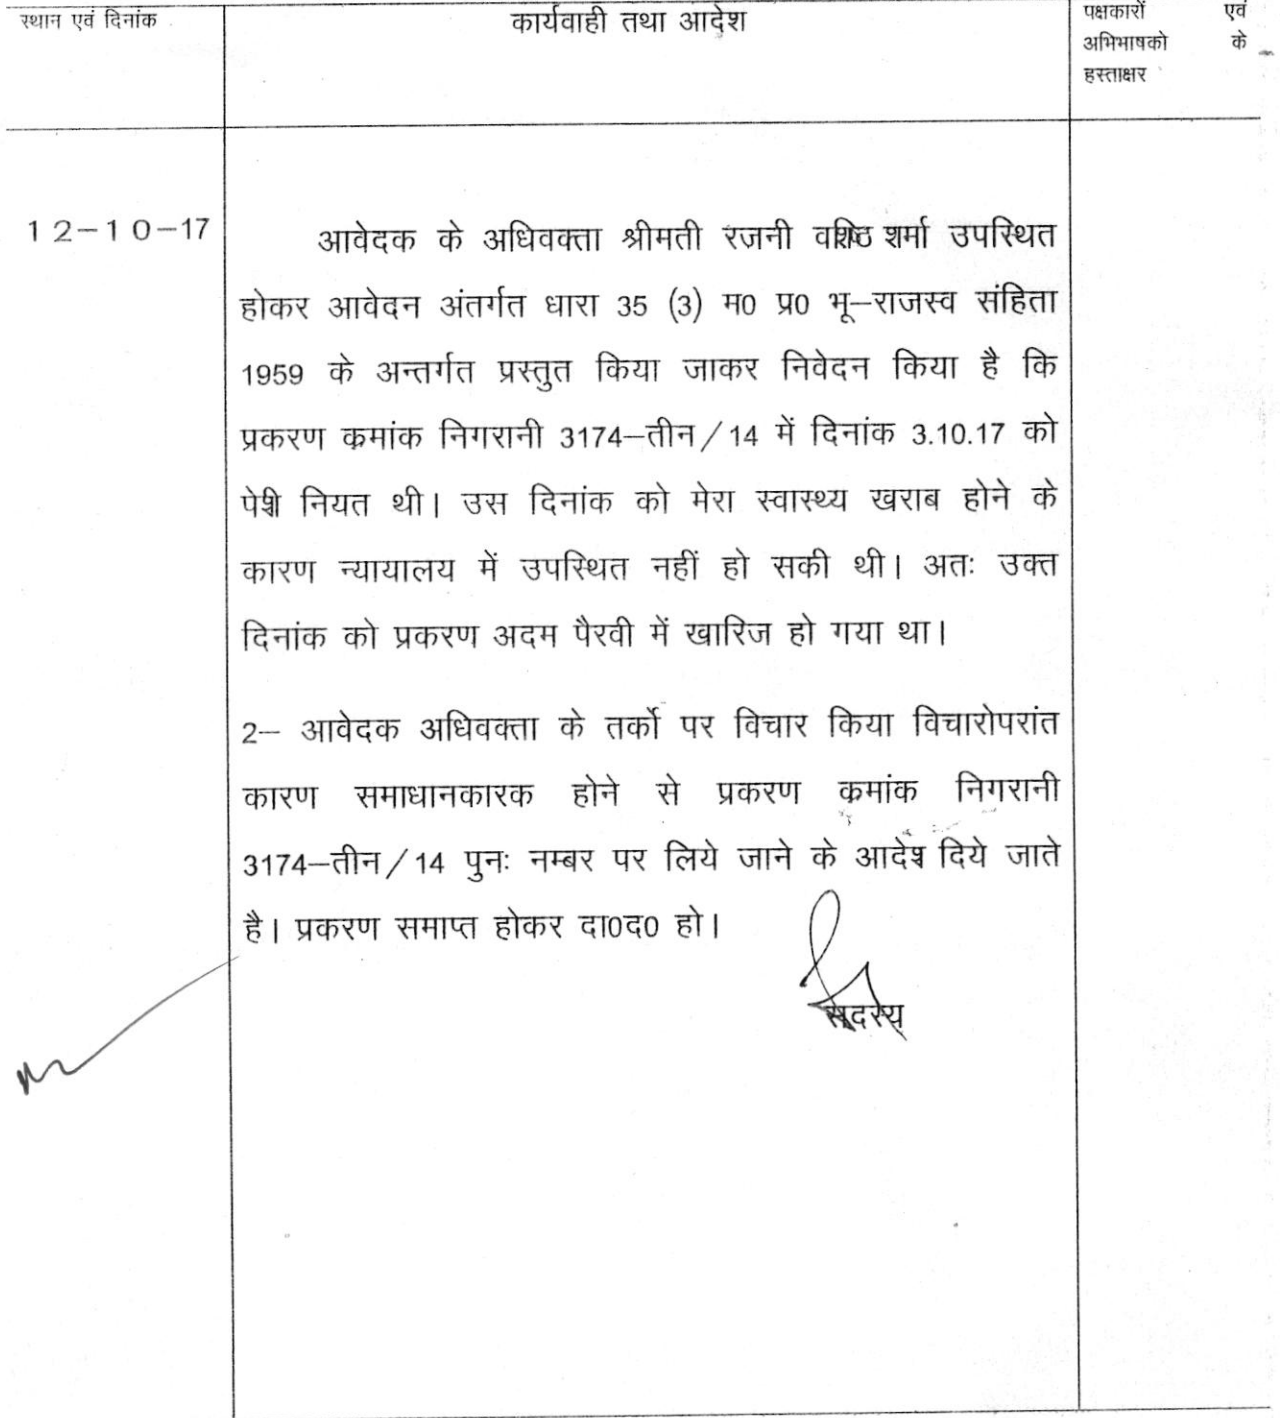 स्थान एवं दिनांक
कार्यवाही तथा आदेश
पक्षकारों एवं
अभिभाषको के
हस्ताक्षर
12-10-17
आवेदक के अधिवक्ता श्रीमती रजनी वशिष्ठ शर्मा उपस्थित
होकर आवेदन अंतर्गत धारा 35 (3) म0 प्र0 भू–राजस्व संहिता
1959 के अन्तर्गत प्रस्तुत किया जाकर निवेदन किया है कि
प्रकरण क्रमांक निगरानी 3174–तीन/14 में दिनांक 3.10.17 को
पेशी नियत थी। उस दिनांक को मेरा स्वास्थ्य खराब होने के
कारण न्यायालय में उपस्थित नहीं हो सकी थी। अतः उक्त
दिनांक को प्रकरण अदम पैरवी में खारिज हो गया था।
2– आवेदक अधिवक्ता के तर्को पर विचार किया विचारोपरांत
कारण समाधानकारक होने से प्रकरण क्रमांक निगरानी
3174–तीन/14 पुनः नम्बर पर लिये जाने के आदेश दिये जाते
है। प्रकरण समाप्त होकर दा0द0 हो।
सदस्य